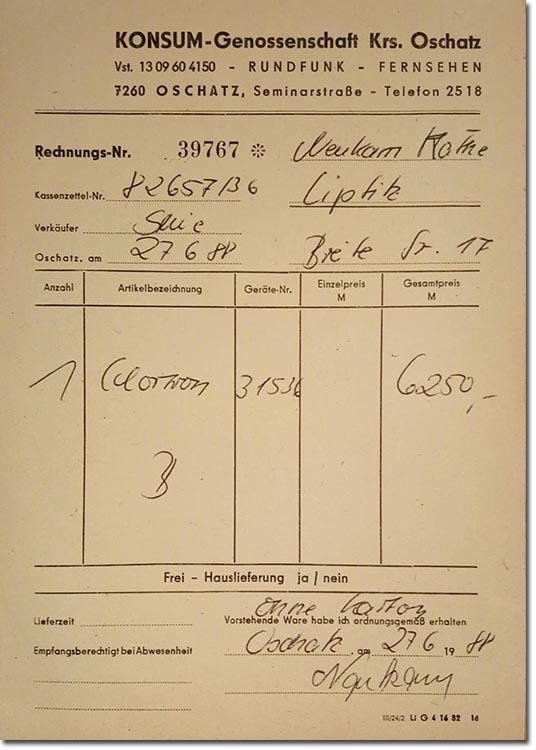 KONSUM-Genossenschaft Krs. Oschatz
Vst. 13 09 60 4150 - RUNDFUNK - FERNSEHEN
7260 OSCHATZ, Seminarstraße - Telefon 25 18
Rechnungs-Nr. 39767 Neukam
Kassenzettel-Nr. 82657/36 Liptitz
Verkäufer
Oschatz, am 27 6 88 Breite Str. 17
Anzahl Artikelbezeichnung Geräte-Nr. Einzelpreis M Gesamtpreis M
1 31536 6250,-
Frei - Hauslieferung ja / nein
ohne Karton
Lieferzeit Vorstehende Ware habe ich ordnungsgemäß erhalten
Empfangsberechtigt bei Abwesenheit Oschatz, am 27 6 19 88
Neukam
III/24/2 Li G 4 16 82 16